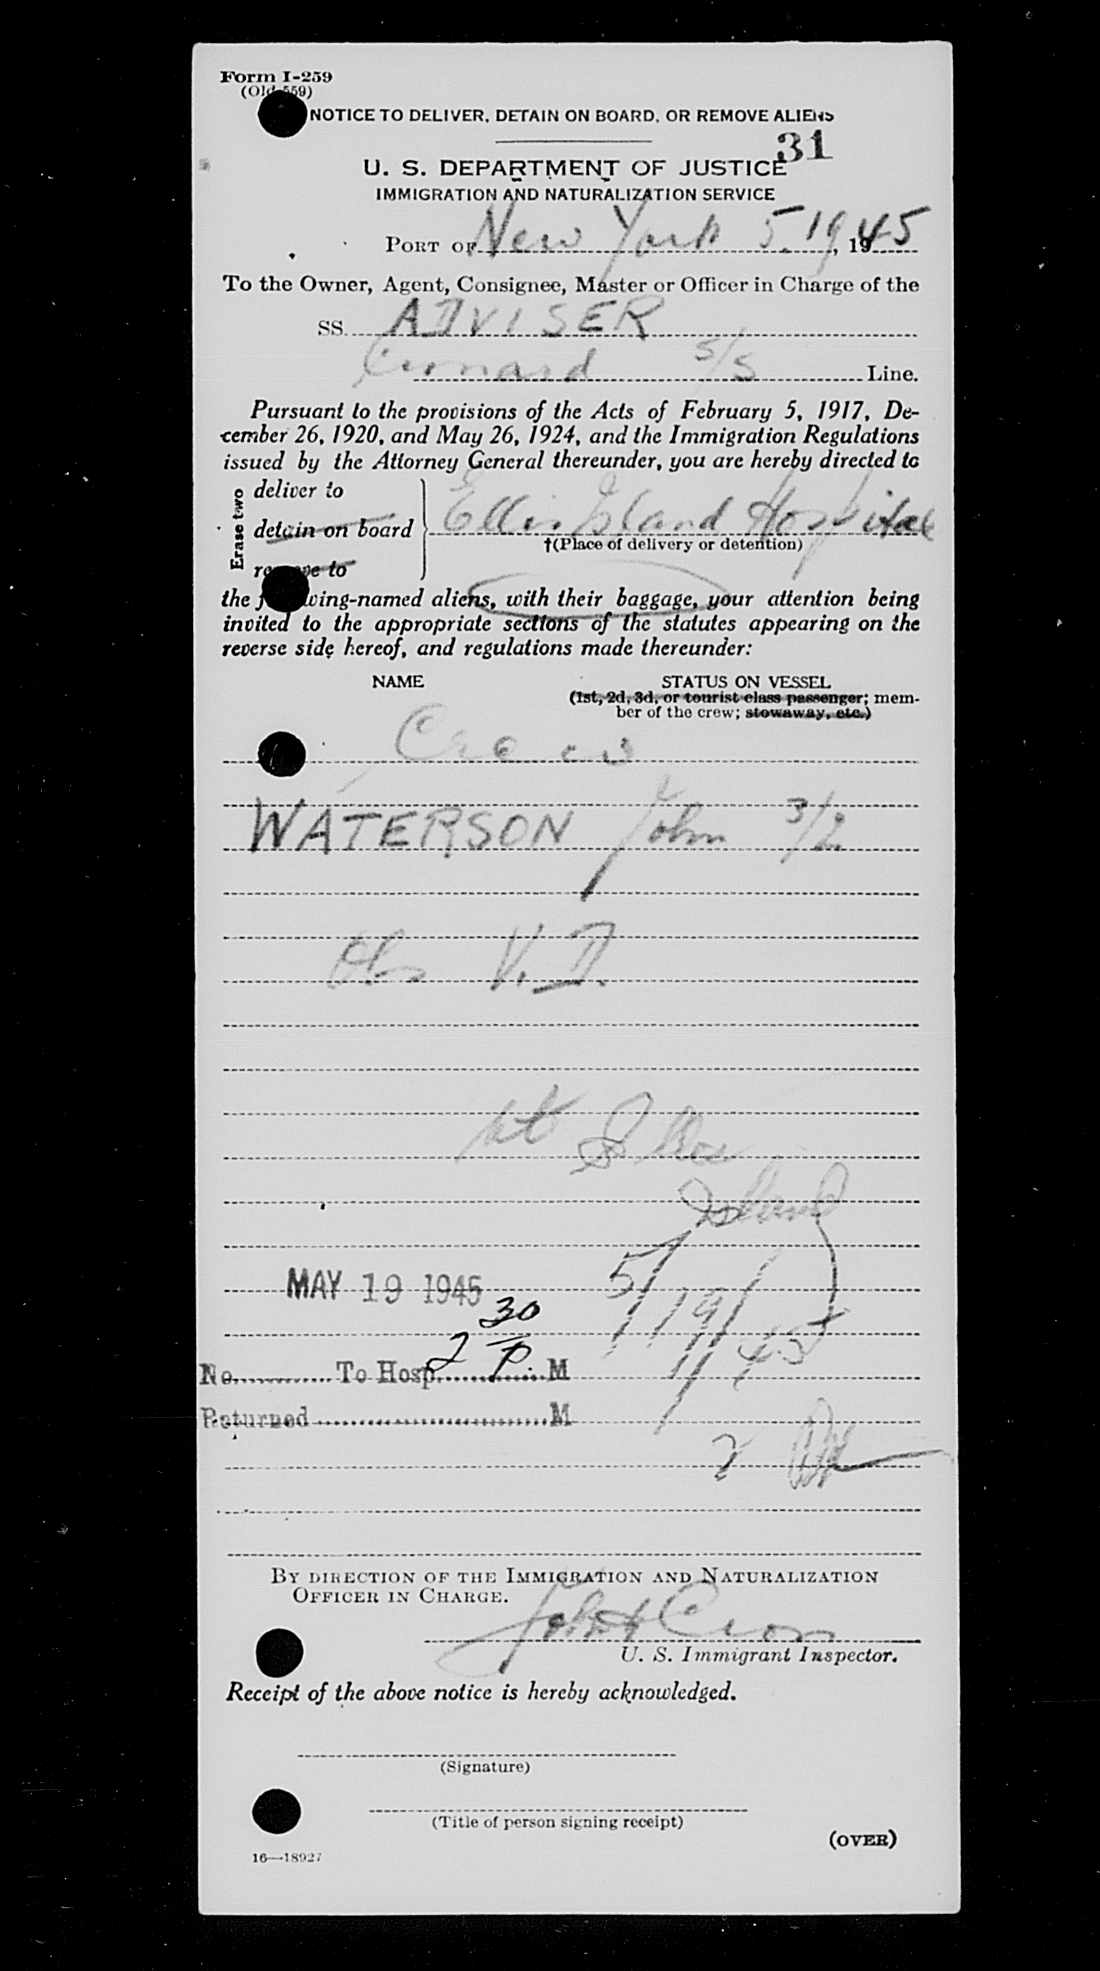 Form I-259
(Old 559)
NOTICE TO DELIVER, DETAIN ON BOARD, OR REMOVE ALIENS
31
U. S. DEPARTMENT OF JUSTICE
IMMIGRATION AND NATURALIZATION SERVICE
PORT OF New York 5.19, 1945
To the Owner, Agent, Consignee, Master or Officer in Charge of the
SS ADVISER
Cunard S/S Line.
Pursuant to the provisions of the Acts of February 5, 1917, De-
cember 26, 1920, and May 26, 1924, and the Immigration Regulations
issued by the Attorney General thereunder, you are hereby directed to
Erase two
deliver to
detain on board
remove to
Ellis Island Hospital
†(Place of delivery or detention)
the following-named aliens, with their baggage, your attention being
invited to the appropriate sections of the statutes appearing on the
reverse side hereof, and regulations made thereunder:
NAME STATUS ON VESSEL
(1st, 2d, 3d, or tourist class passenger; mem-
ber of the crew; stowaway, etc.)
Crew
WATERSON John 3/2
Obs V.D.
at Ellis
Island
5/19/45
MAY 19 1945
2 30 P.
No. To Hosp. M
Returned M
BY DIRECTION OF THE IMMIGRATION AND NATURALIZATION
OFFICER IN CHARGE.
John Cron
U. S. Immigrant Inspector.
Receipt of the above notice is hereby acknowledged.
(Signature)
(Title of person signing receipt)
(OVER)
16—18927